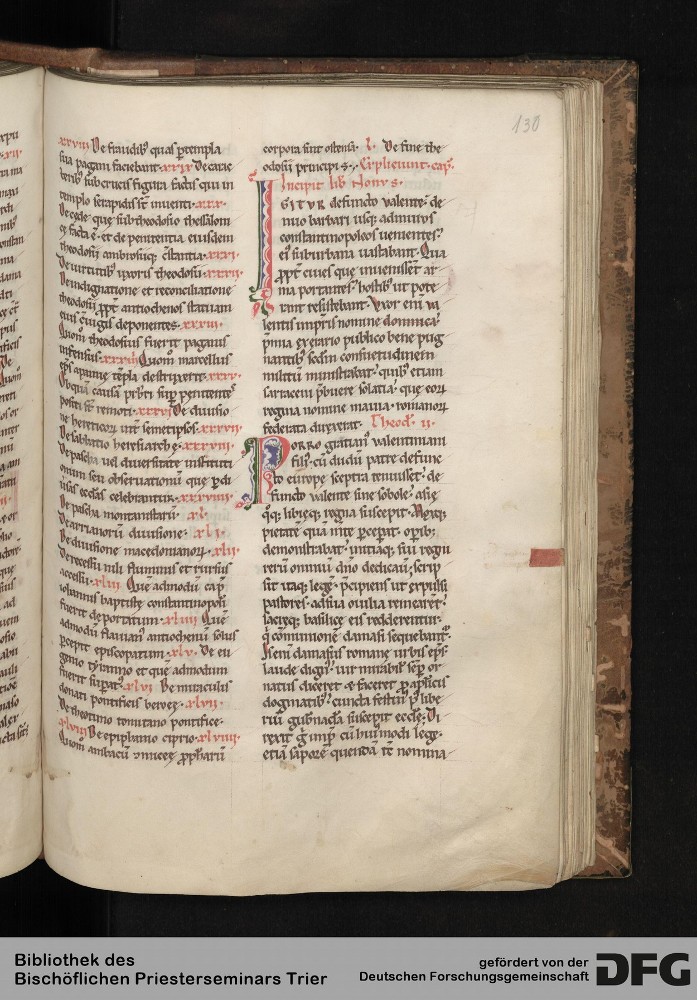 130
xxviii De fraudib; quas ptempla
sua pagani faciebant. xxix De carac
terib; sub crucis figura factis qui in
templo serapidis st inuenti. xxx.
De cede que sub theodosio thessaloni
ce facta ē. et de penitentia eiusdem
theodosii ambrosiiq; cstantia. xxxi.
De uirtutib; uxoris theodosii. xxxii.
De indignatione et reconciliatione
theodosii ppt antiochenos statuam
eius ciugis deponentes. xxxiii.
Quom theodosius fuerit paganis
infensus. xxxiiii Quom marcellus
eps apamie tēpla destruxerit. xxxv.
Ob quam causam prbri sup penitentes
positi st remoti. xxxvi De diuisio
ne hereticor int semetipsos. xxxvii.
De sabbatio heresiarche. xxxviii.
De pascha uel diuersitate instituti
onum seu obseruationum que p di
uersas ecclas celebrantur. xxxviiii.
De pascha montanistarum. xl.
De arrianorum diuisione. xli.
De diuisione macedonianor. xlii.
De recessu nili fluminis et rursus
accessu. xliii Quē admodū cap
iohannis baptiste constantinopoli
fuerit deportatum. xliiii Quē
admodū flauian antiochenū solus
pcepit episcopatum. xlv. De eu
genio tyranno et que admodum
fuerit supat. xlvi De miraculis
donati pontificis beroee. xlvii.
De theotimo tomitano pontifice.
xlviii De epiphanio ciprio. xlviiii.
Quom ambacū & micee pphetarū
corpora sint ostensa. l. De fine the
odosii principis. Expliciunt cap.
Incipit lib Nonus.
IGITUR defuncto ualente. de
nuo barbari usq; ad muros
constantinopoleos uenientes
ei suburbana uastabant. Qua
ppt ciues que inuenissēt ar
ma portantes. hostib; ut pote
rant resistebant. Uxor enī ua
lentis impris nomine dominica.
pmia ex erario publico bene pug
nantib; scdm consuetudinem
militū ministrabat. quib; etiam
sarraceni pbuere solatia. que eor
regina nomine mauia. romanor
federata direxerat. Theod. ii.
Porro gratian ualentiniani
fili. cū dudū patre defunc
to europe sceptra tenuisset. de
functo ualente sine sobole. asie
qq; libieq; regna suscepit. Moxq;
pietatē quā nite pceperat. opib;
demonstrabat. initiaq; sui regni
rerū omniū dno dedicauit. scrip
sit itaq; legē. pcipiens ut expulsi
pastores. ad sua ouilia remearent.
sacreq; basilice eis redderentur.
q communionē damasi sequebant.
Iseni damasius romane urbis eps.
laude dign. uir mirabilis sep or
natus diceret & faceret p aplicis
dogmatib; cuncta festin. p libe
riū gubnacla suscepit ecclē. Di
rexit g imp cū hui modi lege.
etiā sapore quendā tē nomina
Bibliothek des
Bischöflichen Priesterseminars Trier
gefördert von der
Deutschen Forschungsgemeinschaft
DFG